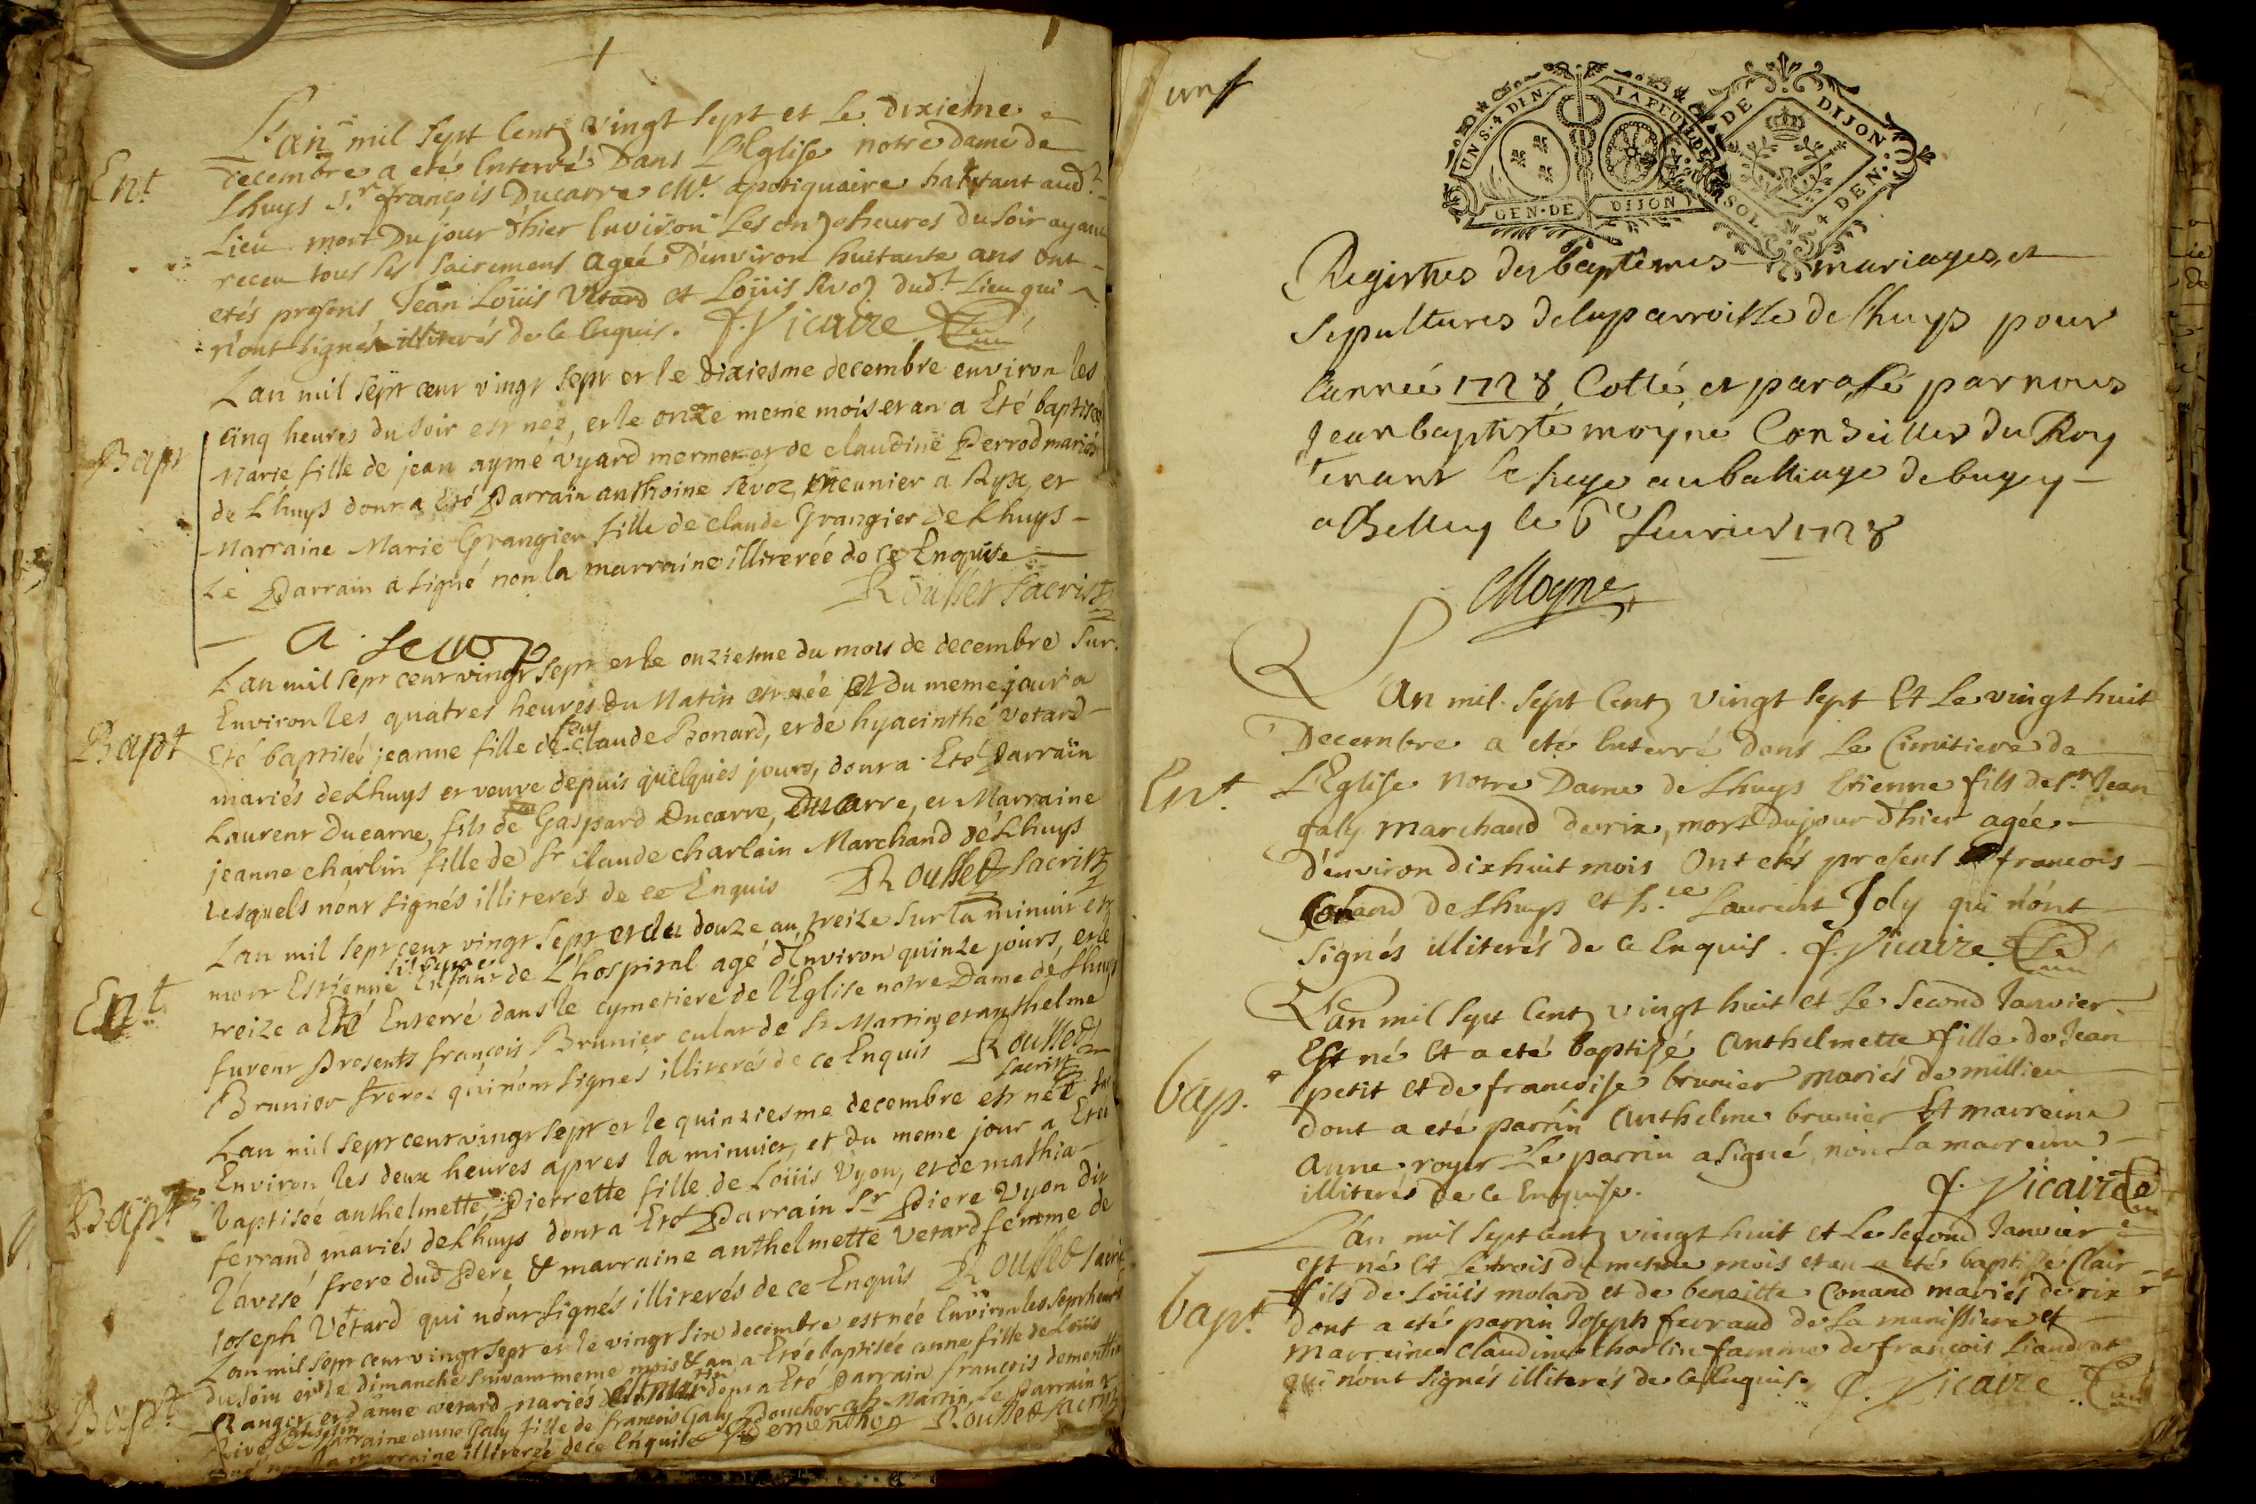 L'an mil sept Cent vingt sept et Le dixieme
Ent
decembre a eté Enterré Dans L'Eglise notre dame de
Lhuys Sr françois Ducarre Mr apotiquaire habitant aud.
Lieu mort Du jour d'hier Environ Les onze heures Du Soir ayant
receu tous les Sacremens agée D'environ huitante ans ont
etés presens Jean Loüis Vetard et Loüis Sevoz dud.t Lieu qui
n'ont signés illiterés de ce Enquis. f. Vicaire
Lan mil sept cent vingt sept et le dixiesme decembre environ les
cinq heures du soir est neé, et le onze meme mois et an a Eté baptisée
Bapt
Marie fille de jean aymé vyard mermet et de claudine Perrod mariés
de Lhuys dont a Eté Parrain anthoine Sevoz, meunier a Ryx, et
Marraine Marie Grangier fille de claude Grangier de Lhuys
Le Parrain a signé non la marraine illiterée de ce Enquise
Rousset sacrist
A. Sevoz
Lan mil sept cent vingt sept et le onziesme du mois de decembre sur
Environ les quatres heures du Matin est née et du meme jour a
Bapt
Eté baptisée jeanne fille de feu claude Bonard, et de hyacinthe vetard
mariés de Lhuys et veuve depuis quelques jours, dont a Eté Parrain
Laurent Ducarre, fils de Gaspard Ducarre, Ducarre, et Marraine
jeanne charlin fille de Sr claude charlain Marchand de Lhuys
lesquels n'ont signés illiterés de ce Enquis Rousset sacrist
Lan mil sept cent vingt sept et du douze au treize sur la minuit est
mort Estienne Enfant de L'hospital agé d'Environ quinze jours, et le
Ent
treize a Eté Enterré dans le cymetiere de l'Eglise notre Dame de Lhuys
furent Presents françois Brunier culat de St Martin et anthelme
Brunier freres qui n'ont signés illiterés de ce Enquis Rousset
sacrist
Lan mil sept cent vingt sept et le quinziesme decembre est née sur
Environ les deux heures apres la minuict, et du meme jour a Eté
Bapt
baptisée anthelmette Pierrette fille de Loüis Vyon, et de mathia
ferrand mariés de Lhuys dont a Eté Parrain Sr Piere Vyon dit
l'avisé frere dud Pere & marraine anthelmette Vetard femme de
joseph Vetard qui n'ont signés illiterés de ce Enquis Rousset sacri
Lan mil sept cent vingt sept et le vingt six decembre est née Environ les sept heures
du soir et le dimanche suivant meme mois & an a Eté baptisée anne fille de Loüis
Bapt
Ranger et d'anne vetard mariés dont a Eté Parrain François dementhon
Marraine anne Galy fille de françois Galy St Martin Le Parrain
marraine illiterée de ce Enquise Dementhon Rousset sacrist
un
UN S. 4 DEN. LA FEUILLE
GEN. DE DIJON
DE DIJON
SOL. 4 DEN.
Registres des baptêmes mariages, et
Sepultures de la parroisse de Lhuys pour
l'année 1728 Cotté, et parafé par nous
Jean baptiste moyne Conseiller du Roy
tenant le siege au balliage de bugey
a Belley le 6e feuvrier 1728
Moyne
L'an mil Sept Cent vingt Sept Et Le vingt huit
Decembre a eté Enterré dans Le Cimitiere de
Ent
L'Eglise Notre Dame de Lhuys Etienne fils de Sr Jean
galy marchand de rix, mort Du jour d'hier agée
d'environ dix huit mois Ont etés presens francois
Conand de Lhuys et Laurent Joly qui n'ont
signés illiterés de ce Enquis. f. Vicaire
L'an mil Sept Cent vingt huit et Le Second Janvier
Est né Et a eté baptisé anthelmette fille de Jean
bap.
petit et de francoise brunier mariés de millieu
dont a eté parrin anthelme brunier Et marreine
anne royer Le parrin a signé non La marreine
illiterés de ce Enquise.
f. Vicaire
L'an mil Sept Cent vingt huit et Le Second Janvier
est né Et Le trois du mesme mois et an a eté baptisé Clair
bapt.
fils de Loüis molard et de benoitte Conand mariés de rix
dont a eté parrin Joseph ferrand de La manissiere et
marreine Claudine Charlin famme de francois Liandrat
qui n'ont Signés illiterés de ce Enquis. f. Vicaire